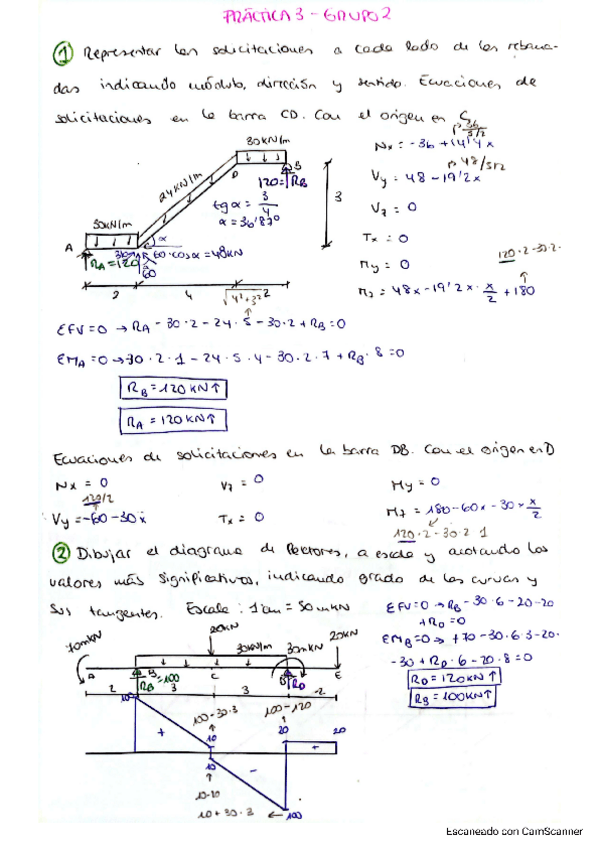 PRÁCTICA 3 - GRUPO 2
① Representar las solicitaciones a cada lado de las rebana-
das indicando módulo, dirección y sentido. Ecuaciones de
solicitaciones en la barra CD. Con el origen en C
36
Nx = -36 + 14'4x
48
Vy = 48 - 19'2x
Vz = 0
Tx = 0
My = 0
120·2-30·2·
Mz = 48x - 19'2x · x/2 + 180
30KN/m
24KN/m
30KN/m
A
B
C
D
RA = 120
120 = RB
tg α = 3/4
α = 36'87º
α
60·cosα = 48KN
60
3
2
4
2
√4²+3²
EFV=0 → RA - 30·2 - 24·5 - 30·2 + RB = 0
EMA=0 → 30·2·1 - 24·5·4 - 30·2·7 + RB·8 = 0
RB = 120KN↑
RA = 120KN↑
Ecuaciones de solicitaciones en la barra DB. Con el origen en D
Nx = 0
Vz = 0
My = 0
120/2
Vy = -60 - 30x
Tx = 0
Mz = 180 - 60x - 30·x·x/2
120·2-30·2·1
② Dibujar el diagrama de Rectores, a escala y acotando los
valores más significativos, indicando grado de las curvas y
sus tangentes. Escala: 1cm = 50mKN
EFV=0 → RB - 30·6 - 20 - 20
+ RD = 0
EMB=0 → +70 - 30·6·3 - 20·
-30 + RD·6 - 20·8 = 0
RD = 120KN↑
RB = 100KN↑
70mKN
20KN
30KN/m
30mKN
20KN
A
B
C
D
E
RB = 100
RD
2
3
3
2
100-30·3
100-120
10
20
20
+
-
+
10
10-20
10+30·3
← 100
Escaneado con CamScanner